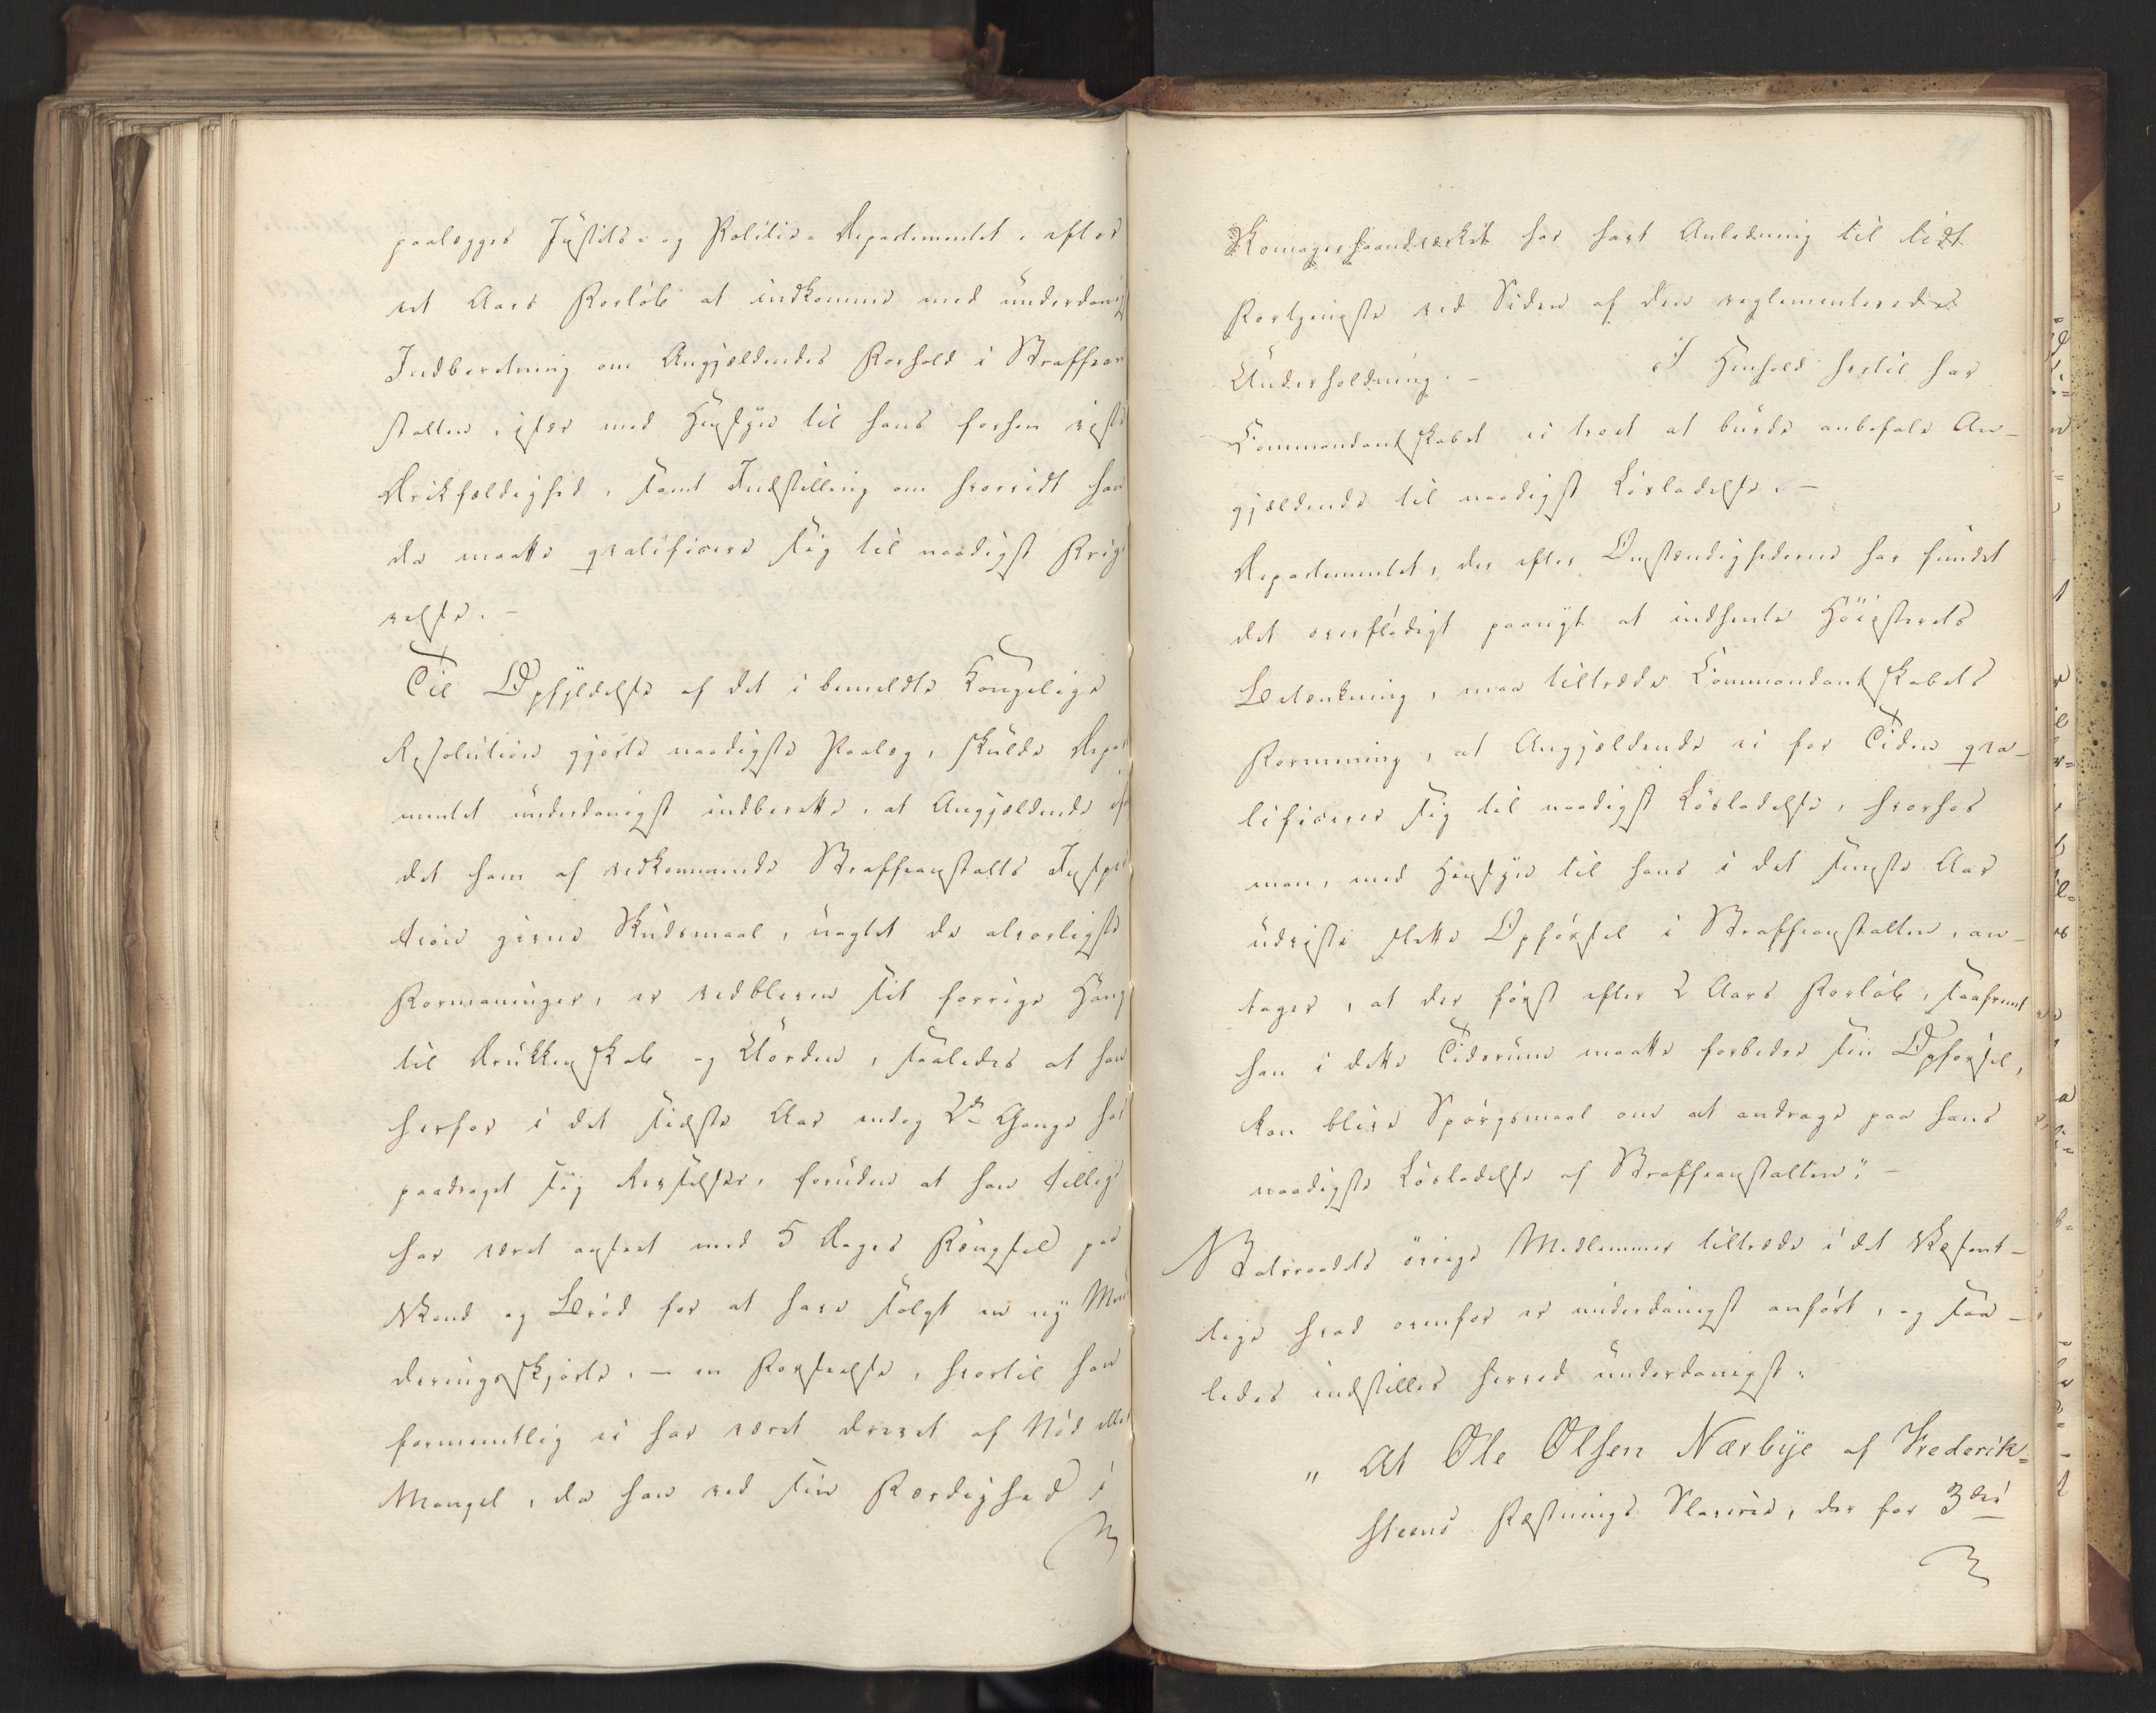 paalægges Justits- og Politie-Departementet, efter
et Aars Forløb at indkomme med underdanig
Indberetning om Angjældendes Forhold i Straffean
stalten, især med Hensyn til hans forhen viste
Drikfældighed, samt Indstilling om hvorvidt han
da maatte qvalificere sig til naadigst Frigi
velse. -
Til Opfyldelse af det i bemeldte Kongelige
Resolution gjorte naadigste Paalæg, skulde Depar
mentet underdanigst indberette, at Angjældende efter
det ham af vedkommende Straffeanstalts Inspec
teion givne Skudsmaal, uagtet de alvorligste
Formaninger, er vedbleven sit forrige Hang
til Drukkenskab og Uorden, saaledes at han
herfor i det sidste Aar endog 2de Gange har
paadraget sig Revselser, foruden at han tillige
har været anseet med 5 Dages Fængsel paa
Vand og Brød for at have solgt en ny Mon
deringsskjorte, – en Forseelse, hvortil han
formentlig ei har været drevet af Nød eller
Mangel, da han ved sin Færdighed i
Komagerhaandværket har havt Anledning til lidt
Fortjeneste ved Siden af den reglementerede
Underholdning. - I Henhold hertil har
Commandantskabet ei troet at burde anbefale An-
gjældende til naadigst Løsladelse. -
Departementet, der efter Omstændighederne har fundet
det overflødigt paanyt at indhente Høiesterets
Betænkning, maa tiltræde Commandantskabets
Formening, at Angjældende ei for Tiden qva-
lificerer sig til naadigst Løsladelse, hvorhos
man, med Hensyn til hans i det seneste Aar
udviste slette Opførsel i Straffeanstalten, an-
tager, at der først efter 2 Aars Forløb, saafremt
han i dette Tidsrum maatte forbedre sin Opførsel,
kan blive Spørgsmaal om at andrage paa hans
naadigste Løsladelse af Straffeanstalten." -
Statsraadets øvrige Medlemmer tiltræde i det Væsent-
lige hvad ovenfor er underdanigst anført, og saa-
ledes indstilles herved underdanigst:
" At Ole Olsen Nærbye af Frederik-
steens Fæstnings Slaverie, der for 3die